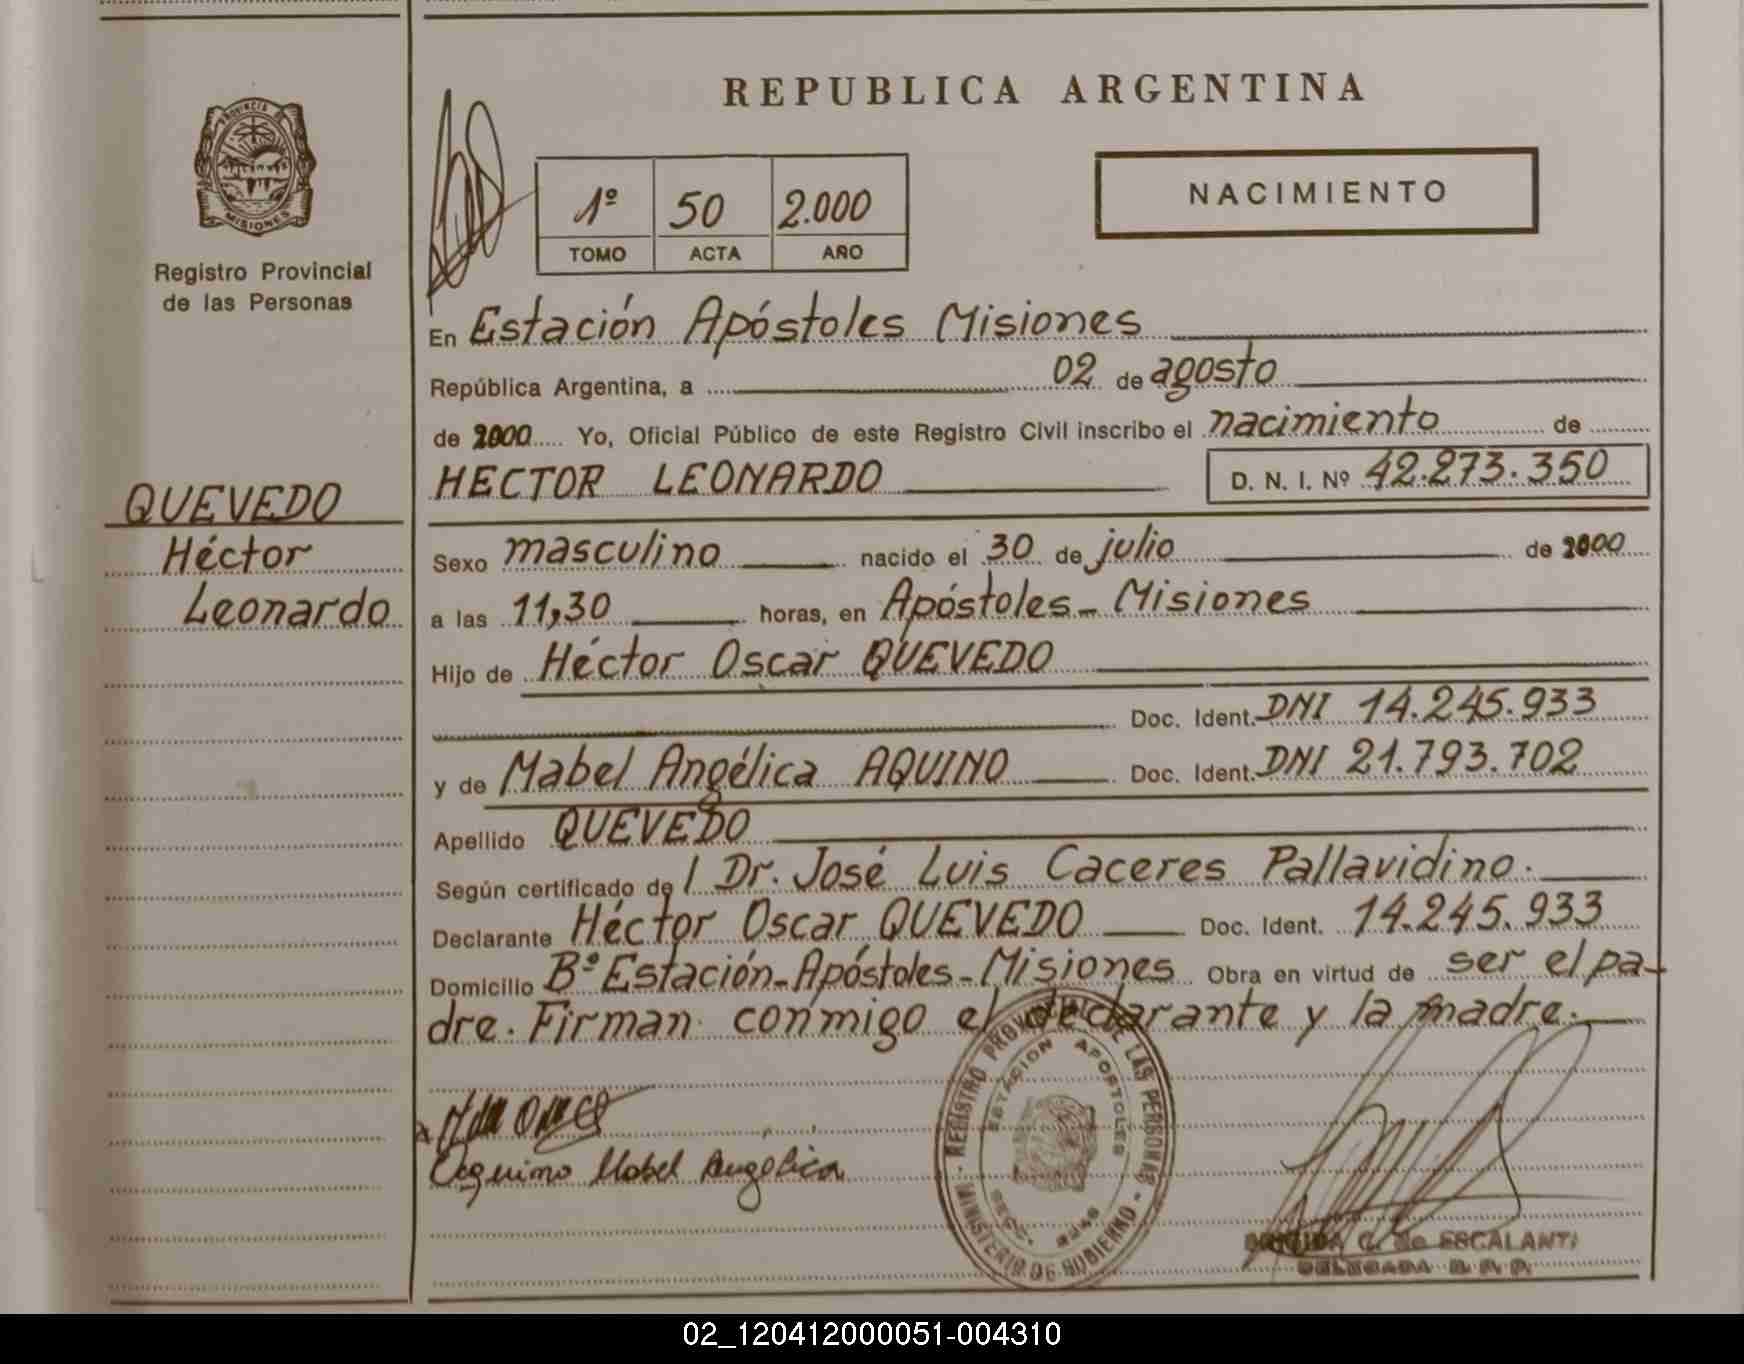 REPUBLICA ARGENTINA
PROVINCIA
MISIONES
Registro Provincial
de las Personas
1º 50 2.000
TOMO ACTA AÑO
NACIMIENTO
En Estación Apóstoles Misiones
República Argentina, a 02 de agosto
de 2000 Yo, Oficial Público de este Registro Civil inscribo el nacimiento de
HECTOR LEONARDO D. N. I. Nº 42.273.350
QUEVEDO
Héctor
Leonardo
Sexo masculino nacido el 30 de julio de 2000
a las 11,30 horas, en Apóstoles - Misiones
Hijo de Héctor Oscar QUEVEDO
Doc. Ident. DNI 14.245.933
y de Mabel Angélica AQUINO Doc. Ident. DNI 21.793.702
Apellido QUEVEDO
Según certificado de / Dr. José Luis Caceres Pallavidino.
Declarante Héctor Oscar QUEVEDO Doc. Ident. 14.245.933
Domicilio Bº Estación - Apóstoles - Misiones Obra en virtud de ser el pa-
dre. Firman conmigo el declarante y la madre.
REGISTRO PROVINCIAL DE LAS PERSONAS
ESTACION APOSTOLES
MINISTERIO DE GOBIERNO
Aquino Mabel Angelica
C. de ESCALANTE
DELEGADA R. P. P.
02_120412000051-004310